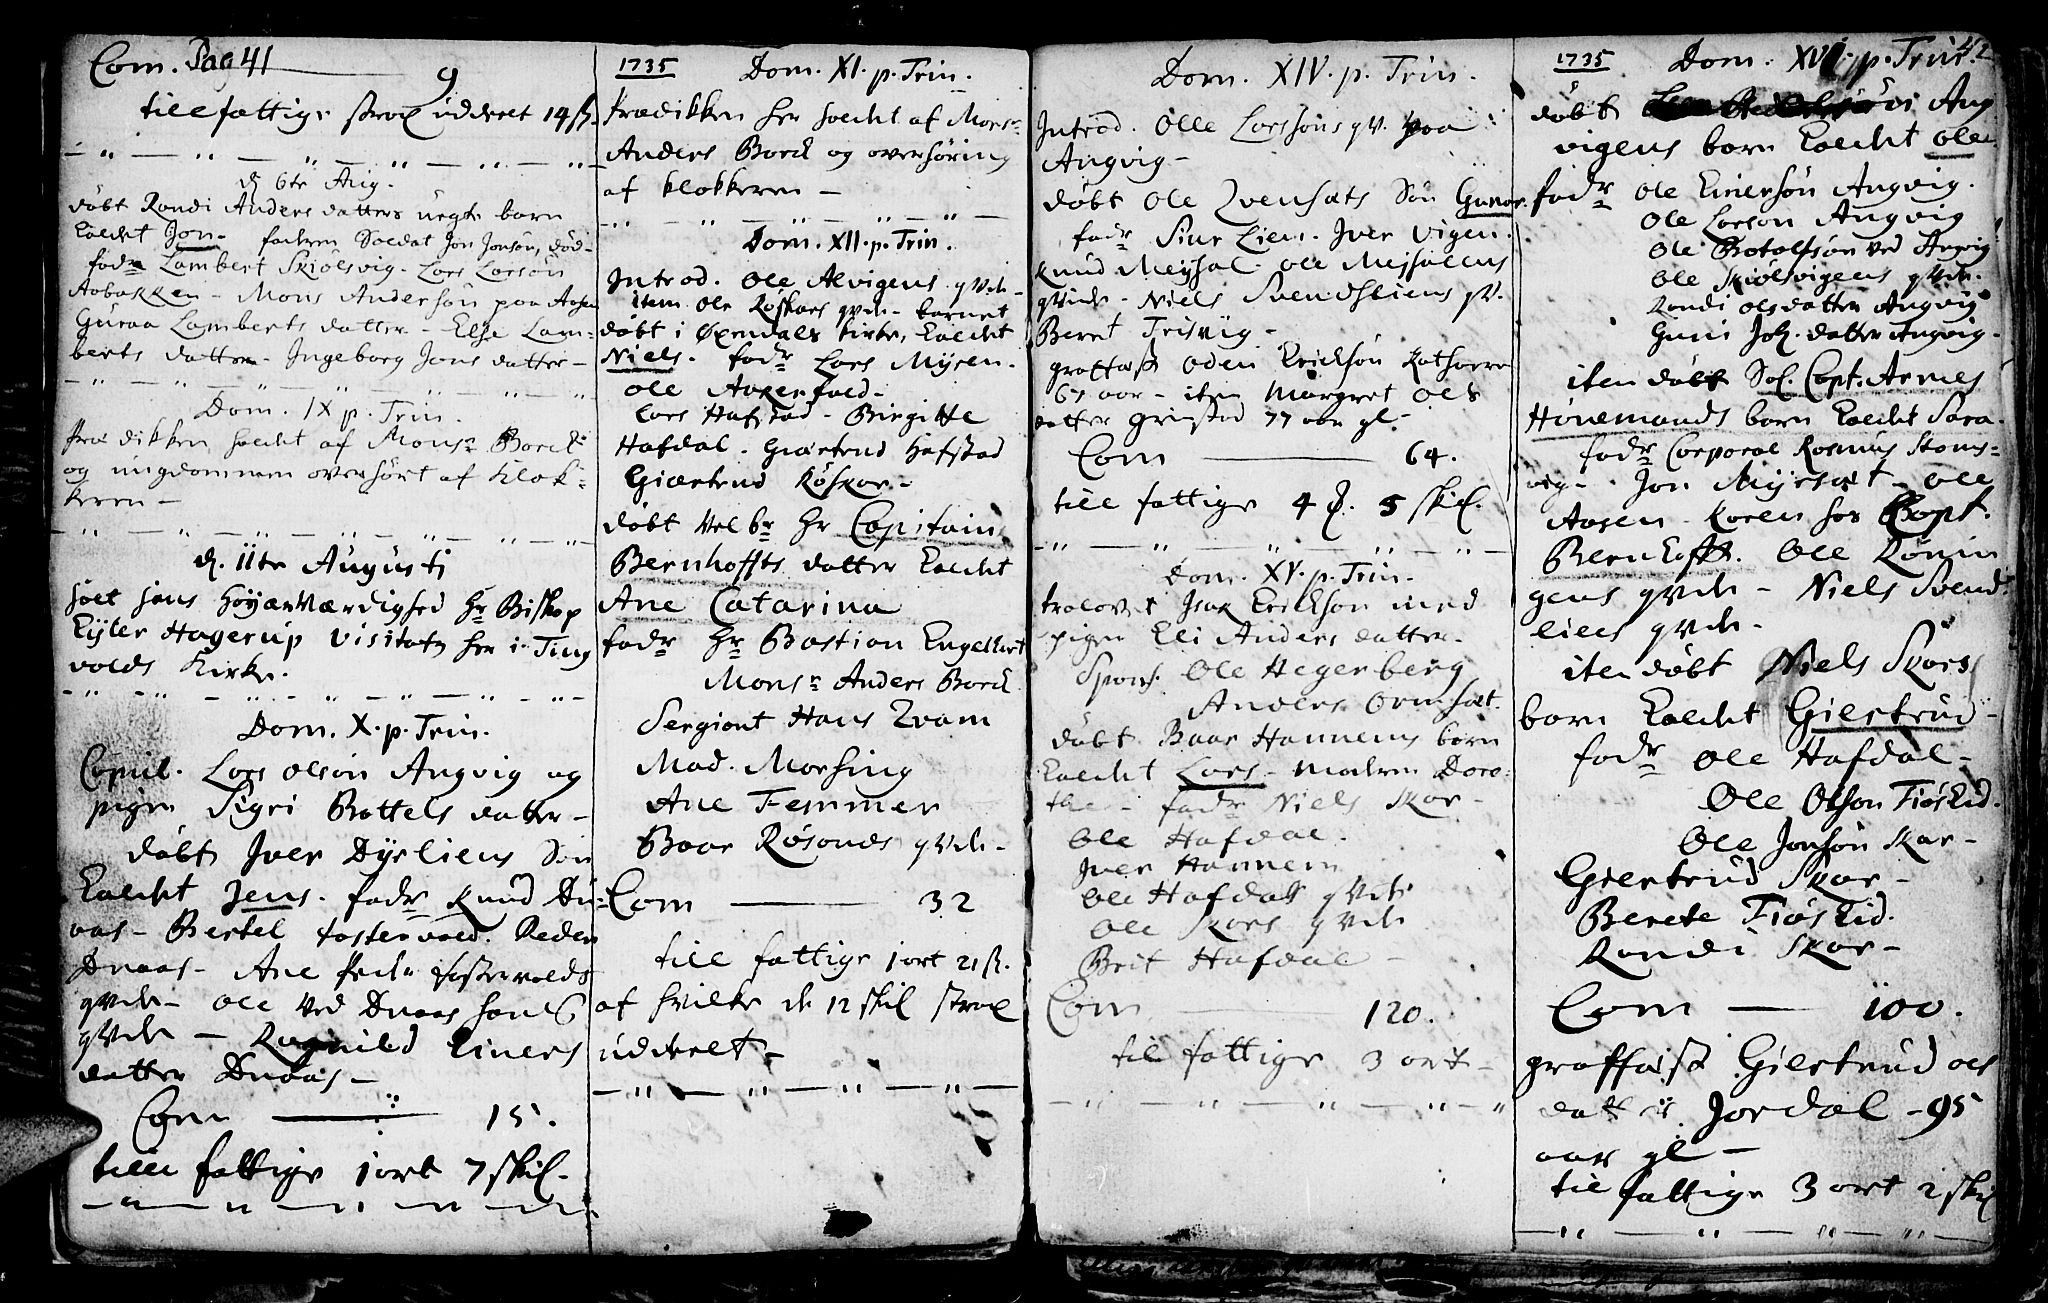 Com. Pag 41
9
till fattige strax udderet 14 ß.
d. 6te Aug.
døbt Randi Anders datters uegte barn
kaldet Jon. fadren Soldat Jon Jonsøn, død-
fadr Lambert Skiølsvig. Lars Larsøn
Aabakken - Mons Andersøn paa Aasen
Guraa Lamberts datter - Else Lam-
berts datter - Ingeborg Jons datter -
Dom. IX p. Trin.
Prædikken holdt af Monsr Borck
og ungdommen overhørt af Klok-
keren -
d. 11te Augusti
holt hans Høyærværdighed Hr Biskop
Eyler Hagerup Visitatz her i Ting
volds Kirke.
Dom. X. p. Trin.
Copul. Lars Olsøn Angvig og
pigen Sigri Bottels datter -
døbt Iver Dyrliens Søn
kaldet Jens. fadr Knud Du-
aas - Bertel Fostervold. Peder
Duaas - Ane Peder Fostervolds
qvde - Ole ved Duaas hans
qvde - Ragnild Einers
datter Duaas -
Com 15.
till fattige 1 ort 7 skil -
1735 Dom. XI. p. Trin.
Prædikken her holdt af Monsr
Anders Borck og overhøring
af klokkeren -
Dom. XII. p. Trin.
Introd. Ole Alvigens qvde -
item Ole Røskars qvde - barnet
døbt i Øxendals kirke, kaldet
Niels. fadr Lars Myren.
Ole Aaxenvold -
Lars Hafstad - Birgitte
Hafdal. Giærtrud Hafstad
Giærtrud Røskar -
døbt Velbr Hr Capitain
Bernhoffts datter kaldet
Ane Catarina
fadr Hr Bastian Engelbert
Monsr Anders Borck
Sergiant Hans Tvam
Mad. Morsing
Ane Femmer
Baar Røsands qvde -
Com 32
till fattige 1 ort 21 ß.
af hvilke de 12 skil strax
udderet -
Dom. XIV. p. Trin.
Introd. Olle Larssøns qv. paa
Angvig -
døbt Ole Tvensæts Søn Gunor.
fadr Siur Lien. Iver Vigen.
Knud Meysal. Ole Meysalens
qvinde - Niels Svendsliens qv.
Beret Trisvig -
grafffæst Oden Erichsøn
67 aar - item Margret Ols
datter Grisstad 77 aar gl.
Com 64.
till fattige 4 ß. 5 skil.
Dom. XV. p. Trin.
trolovet Isak Erickson med
pigen Eli Anders datter.
Spons. Ole Hegerberg
Anders Ormsæt.
døbt Baar Hannems barn
kaldet Lars. Modren Doro-
the - fadr Niels Skar -
Ole Hafdal.
Iver Hannem
Ole Hafdals qvde
Ole Skars qvde
Brit Hafdal -
Com 120.
til fattige 3 ort -
1735 Dom. XVI. p. Trin. 42
døbt Ang
vigens barn kaldet Ole
fadr Ole Einersøn Angvig.
Ole Larsøn Angvig
Ole Botolfsøn ved Angvig
Ole Skiølsvigens qvde.
Randi Olsdatter Angvig
Guni Joh. datter Angvig -
iten døbt Sol. Capt. Arnes
Hønemands barn kaldet Sara.
fadr Corporal Rasmus Stoms-
vig - Jon Myrsæt - Ole
Aasen - Karen hos Capt.
Bernhofft. Ole Rønin
gens qvde - Niels Svend-
liens qvde -
iten døbt Niels Skars
barn kaldet Giertrud -
fadr Ole Hafdal -
Ole Olson Fiøskid.
Ole Jonsøn Skar -
Giertrud Skar -
Berete Fiøskid.
Randi Skar -
Com 100.
grafffæst Giertrud Ols
datter Jordal - 95
aar gl -
til fattige 3 ort 2 skil